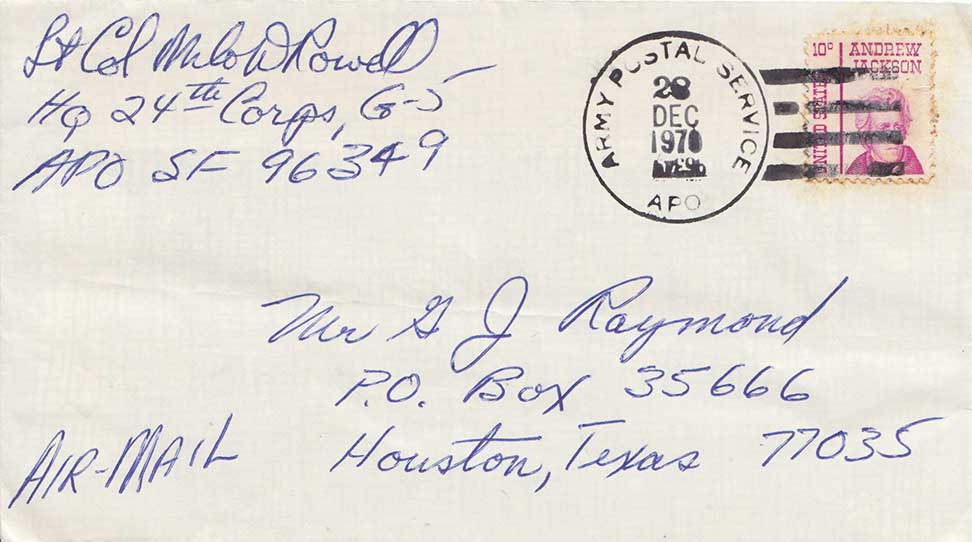 Lt Col Milo D Rowell
HQ 24th Corps, G-5
APO SF 96349
ARMY POSTAL SERVICE
28
DEC
1970
APO
10c ANDREW
JACKSON
UNITED STATES
Mr G J Raymond
P.O. Box 35666
Houston, Texas 77035
AIR-MAIL